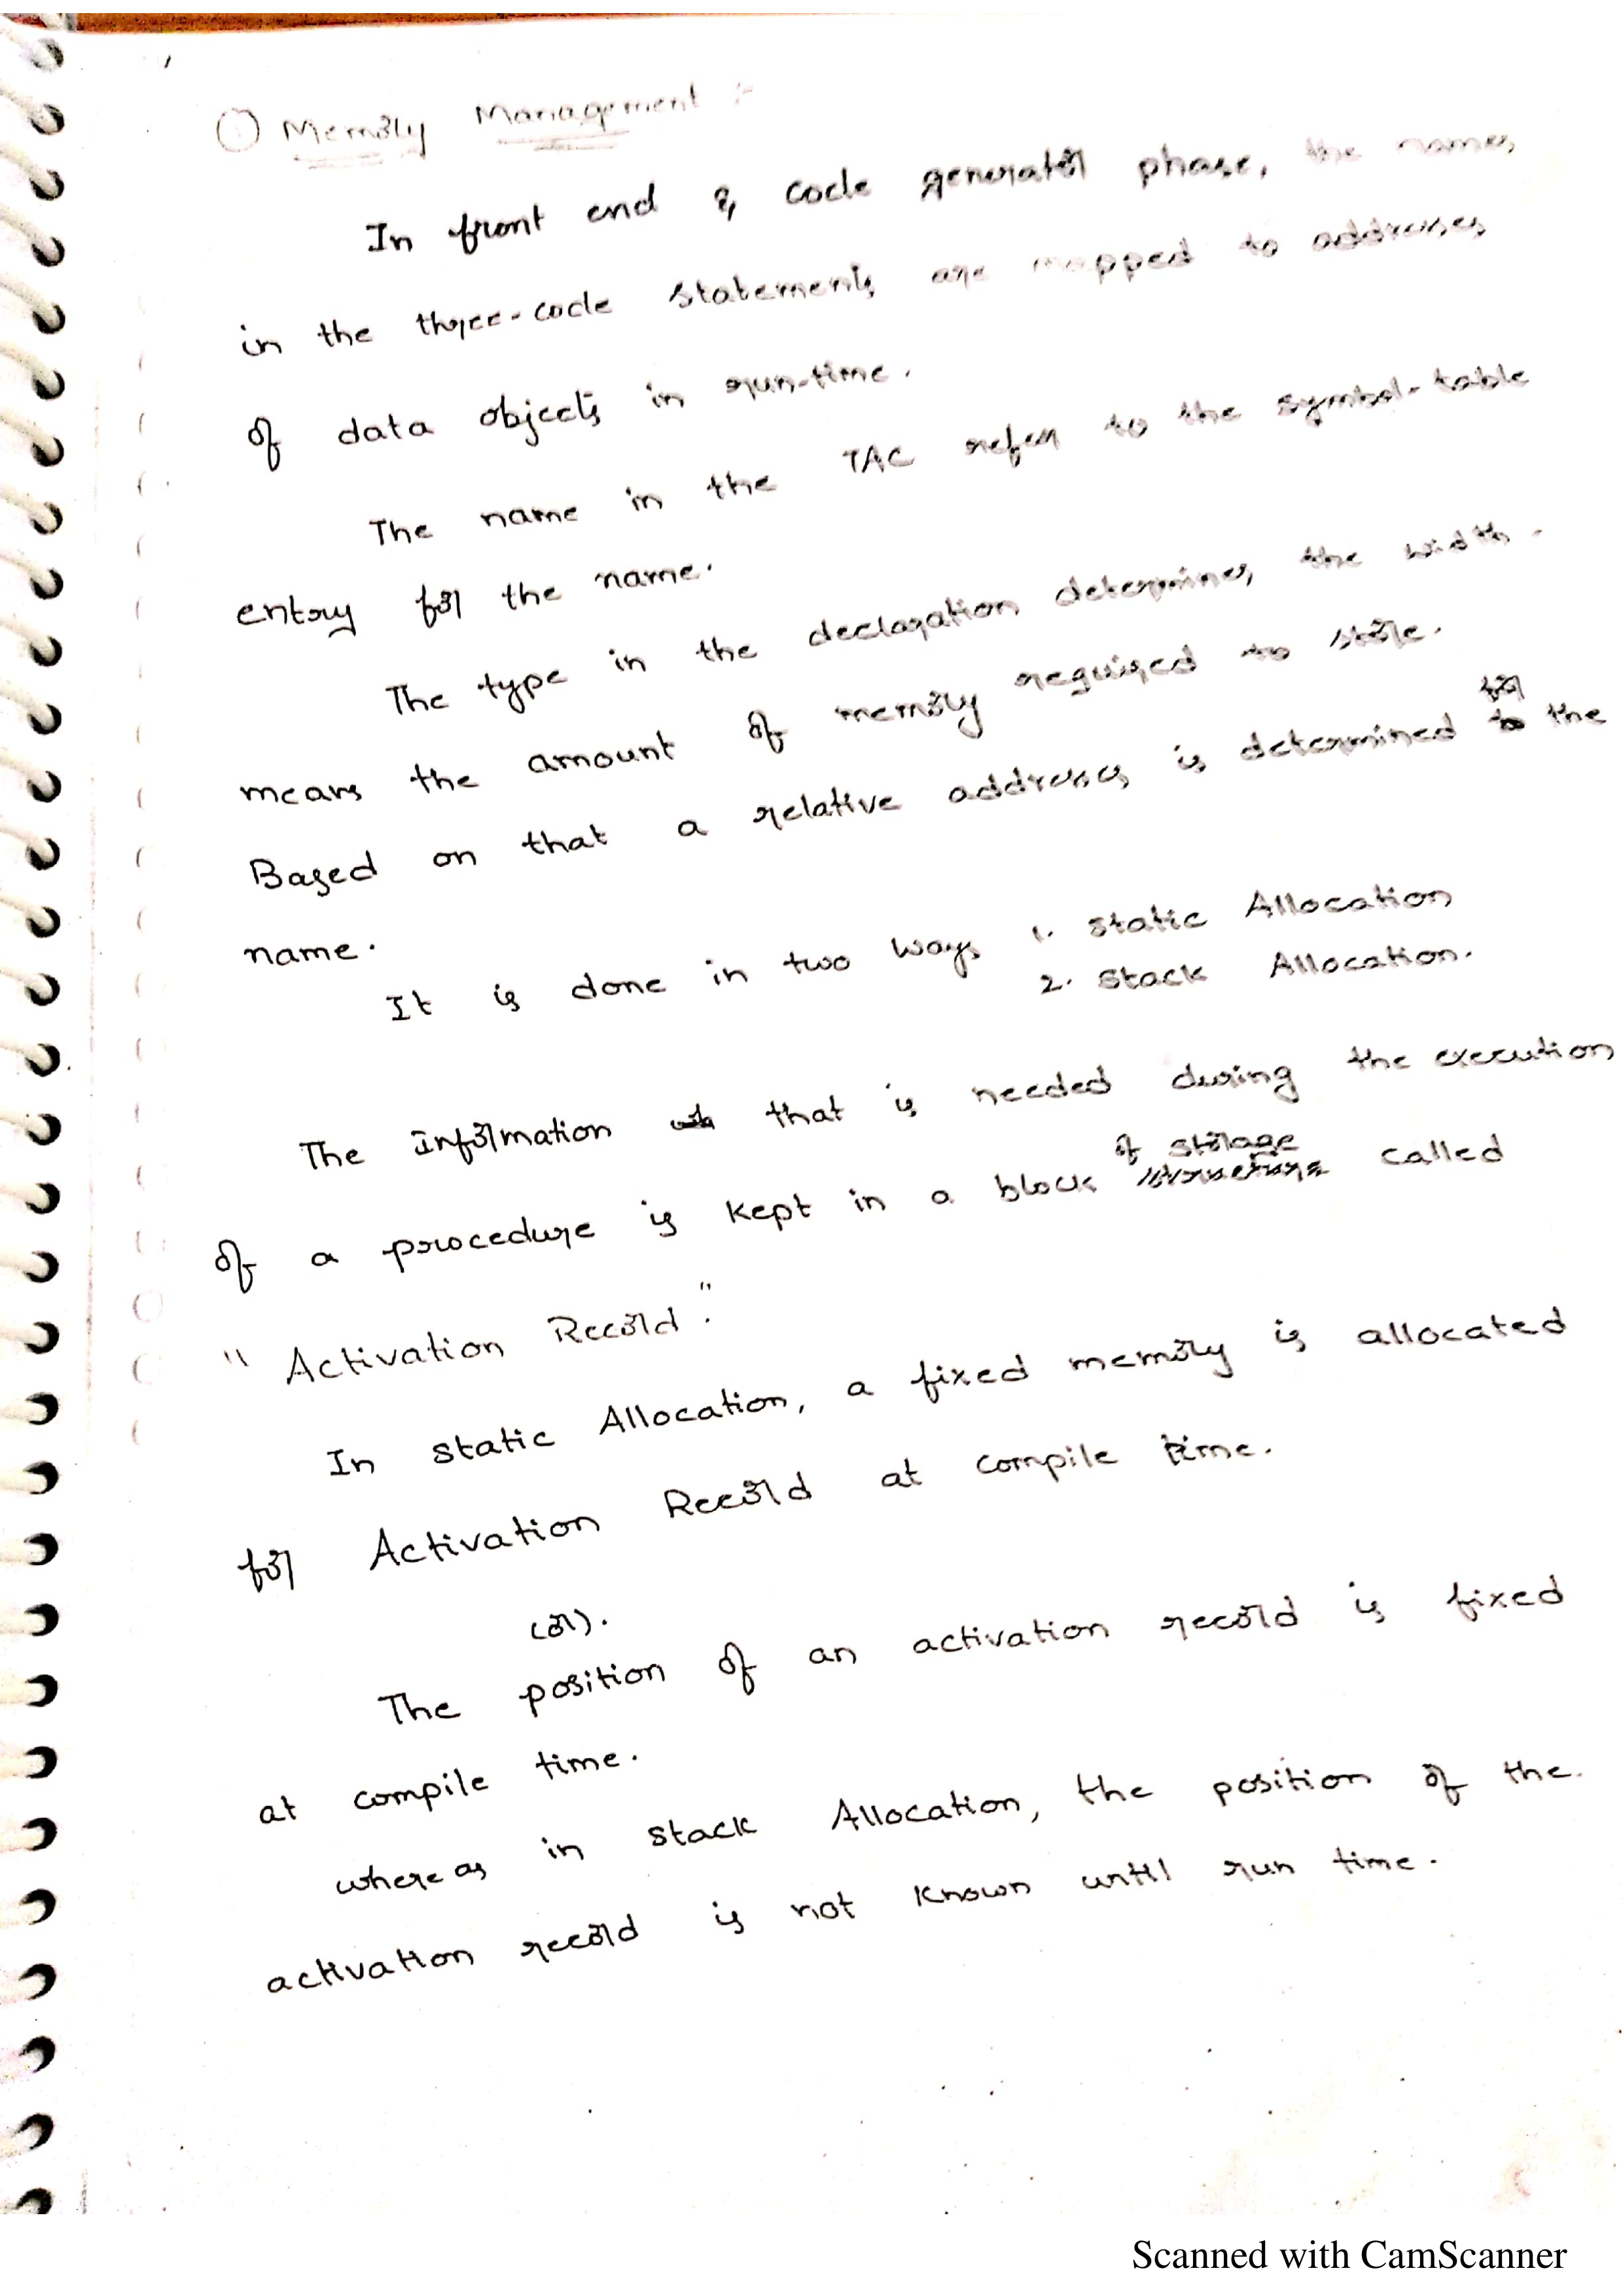 ① Memory Management :-
In front end & code generator phase, the names
in the three-code statements are mapped to addresses
of data objects in run-time.
The name in the TAC refer to the symbol-table
entry for the name.
The type in the declaration determines the width.
means the amount of memory required to store.
Based on that a relative addresses is determined for the
name.
It is done in two ways 1. Static Allocation
2. Stack Allocation.
The Information that is needed during the execution
of a procedure is kept in a block of storage called
"Activation Record".
In static Allocation, a fixed memory is allocated
for Activation Record at compile time.
(or).
The position of an activation record is fixed
at compile time.
where as in stack Allocation, the position of the.
activation record is not known until run time.
Scanned with CamScanner